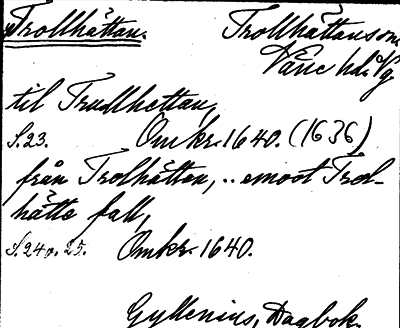 Trollhättan. Trollhättans sn.
Väne hd. Vg
til Trudlhettan,
S. 23. Omkr. 1640. (1636)
från Trolhätten, .. emoot Trol-
hätte fall,
S. 24 o. 25. Omkr. 1640.
Gyllenius, Dagbok.